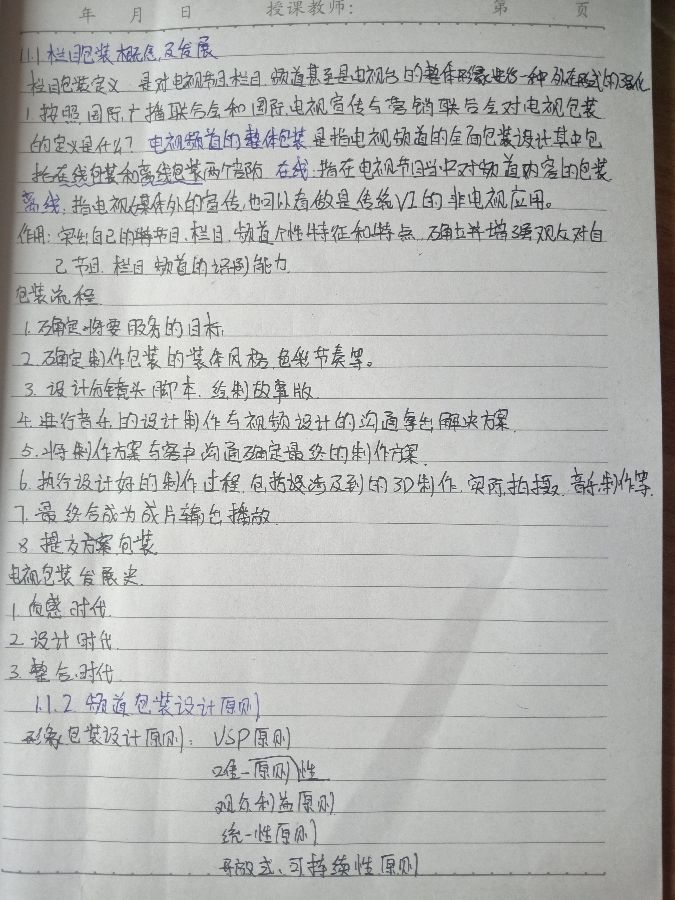 年 月 日 授课教师: 第 页
1.1.1 栏目包装概念及发展
栏目包装定义 是对电视节目、栏目、频道甚至是电视台的整体形象进行一种外在形式的强化
1. 按照国际广播联合会和国际电视宣传与营销联合会对电视包装
的定义是什么? 电视频道的整体包装是指电视频道的全面包装设计其中包
括在线包装和离线包装两个部分. 在线: 指在电视节目当中对频道内容的包装
离线: 指电视媒体外的宣传, 也可以看做是传统VI的非电视应用。
作用: 突出自己的节目、栏目、频道个性特征和特点. 确立并增强观众对自
己节目、栏目 频道的识别能力.
包装流程
1. 确定将要服务的目标.
2. 确定制作包装的整体风格, 色彩节奏等。
3. 设计分镜头脚本. 绘制故事版.
4. 进行音乐的设计制作与视频设计的沟通拿出解决方案.
5. 将制作方案与客户沟通确定最终的制作方案.
6. 执行设计好的制作过程, 包括涉及到的3D制作, 实际拍摄, 音乐制作等.
7. 最终合成为成片输出播放
8. 提交方案包装
电视包装发展史.
1. 质感时代
2. 设计时代.
3. 整合时代
1.1.2 频道包装设计原则
形象包装设计原则: USP原则
唯一原则性
观众利益原则
统一性原则
开放式、可持续性原则